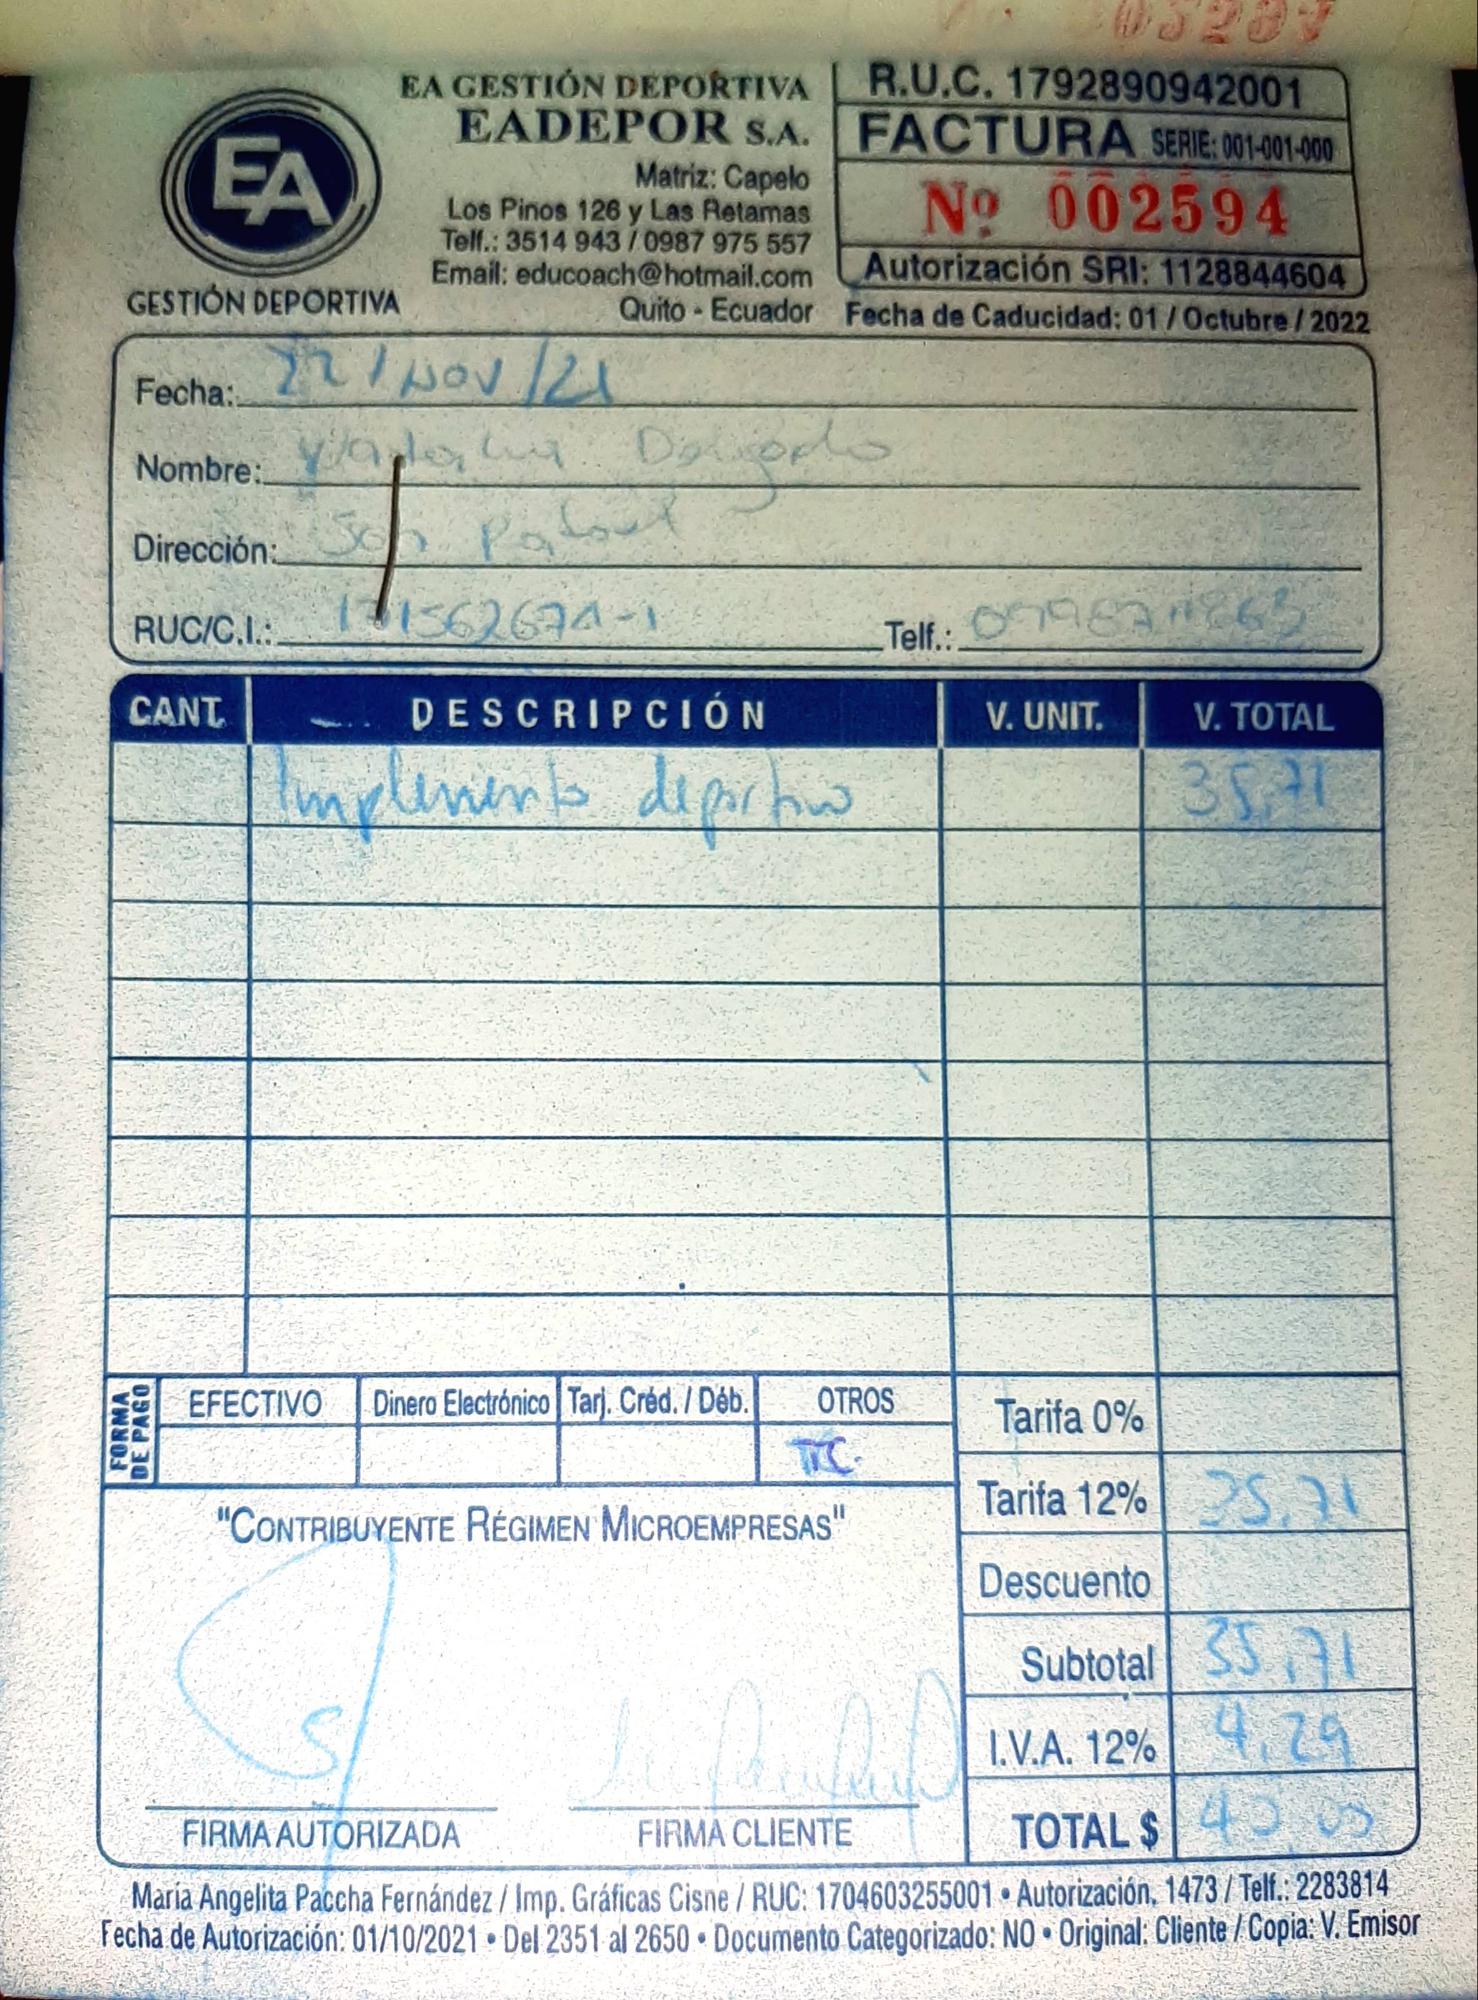 EA GESTIÓN DEPORTIVA
EADEPOR S.A.
Matriz: Capelo
Los Pinos 126 y Las Retamas
Telf.: 3514 943 / 0987 975 557
Email: educoach@hotmail.com
Quito - Ecuador
EA
GESTIÓN DEPORTIVA
R.U.C. 1792890942001
FACTURA SERIE: 001-001-000
Nº 002594
Autorización SRI: 1128844604
Fecha de Caducidad: 01 / Octubre / 2022
Fecha: 22 / NOV / 21
Nombre: Delgado
Dirección: San Rafael
RUC/C.I.: Telf.:
CANT. DESCRIPCIÓN V. UNIT. V. TOTAL
Implemento deportivo 35,71
FORMA DE PAGO
EFECTIVO Dinero Electrónico Tarj. Créd. / Déb. OTROS
Tarifa 0%
Tarifa 12% 35,71
"CONTRIBUYENTE RÉGIMEN MICROEMPRESAS"
Descuento
Subtotal 35,71
I.V.A. 12% 4,29
TOTAL $ 40,00
FIRMA AUTORIZADA FIRMA CLIENTE
María Angelita Paccha Fernández / Imp. Gráficas Cisne / RUC: 1704603255001 • Autorización. 1473 / Telf.: 2283814
Fecha de Autorización: 01/10/2021 • Del 2351 al 2650 • Documento Categorizado: NO • Original: Cliente / Copia: V. Emisor